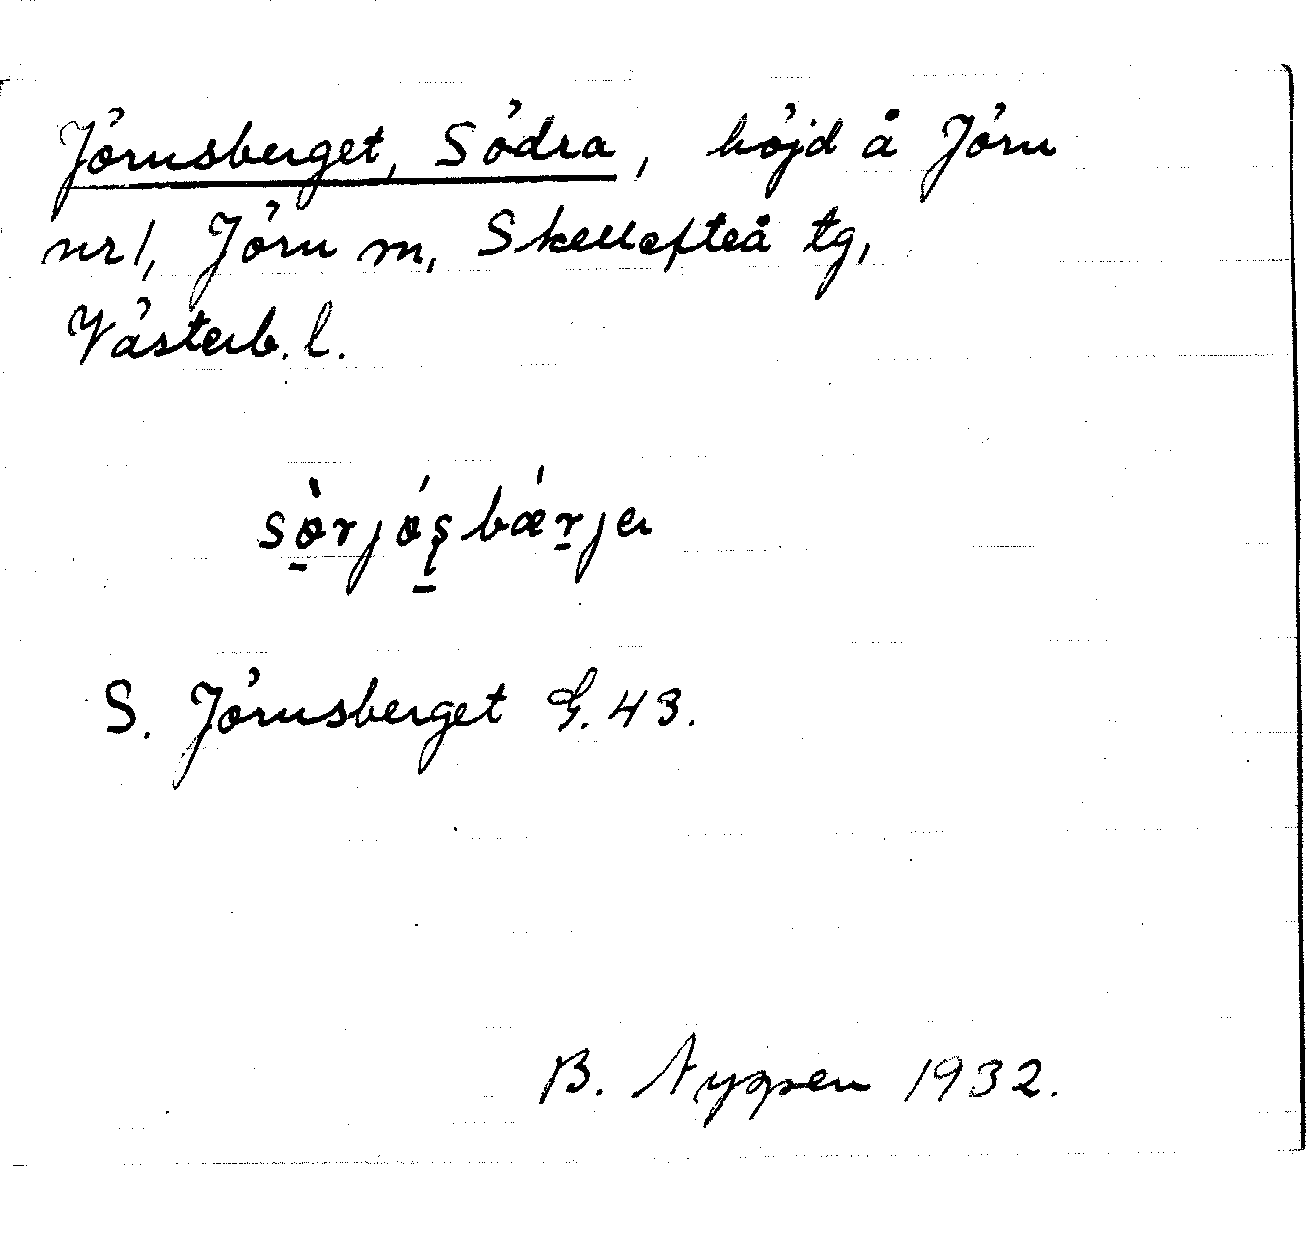 Jörnsberget, Södra, höjd å Jörn
nr 1, Jörn m, Skellefteå tg,
Västerb. l.
S. Jörnsberget G. 43.
B. Nygren 1932.